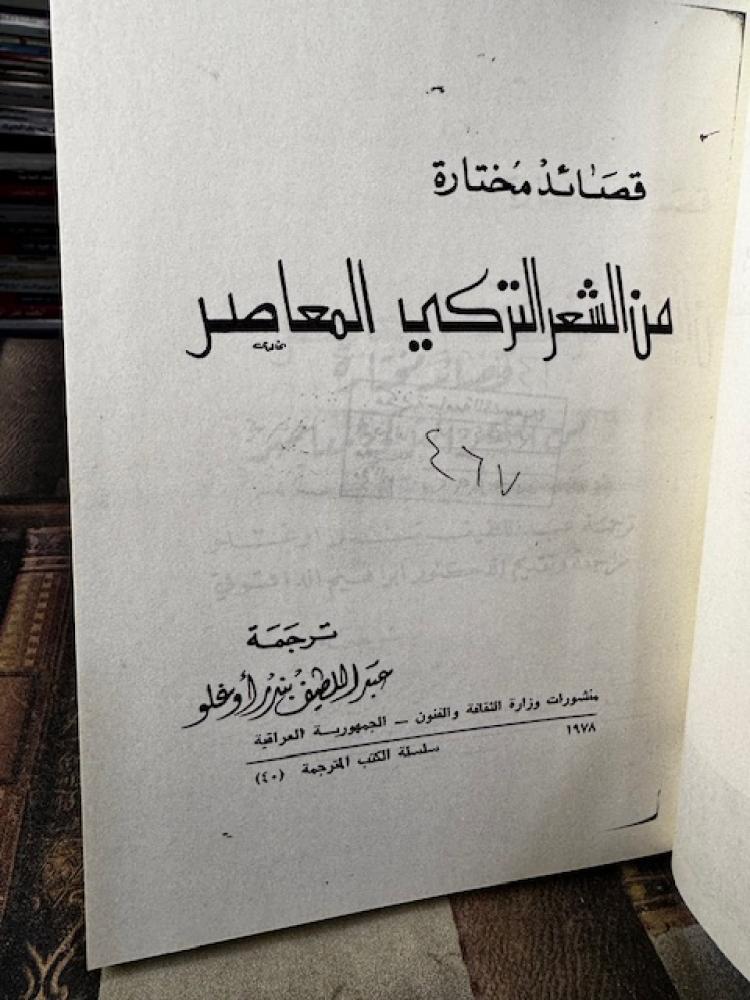 قصَائدُ مُختارة
من الشعر التركي المعاصر
٤٦٧
ترجَمَة
عبَد اللطيف بندر أوغلو
منشورات وزارة الثقافة والفنون – الجمهورية العراقية
١٩٧٨
سلسلة الكتب المترجمة (٤٠)